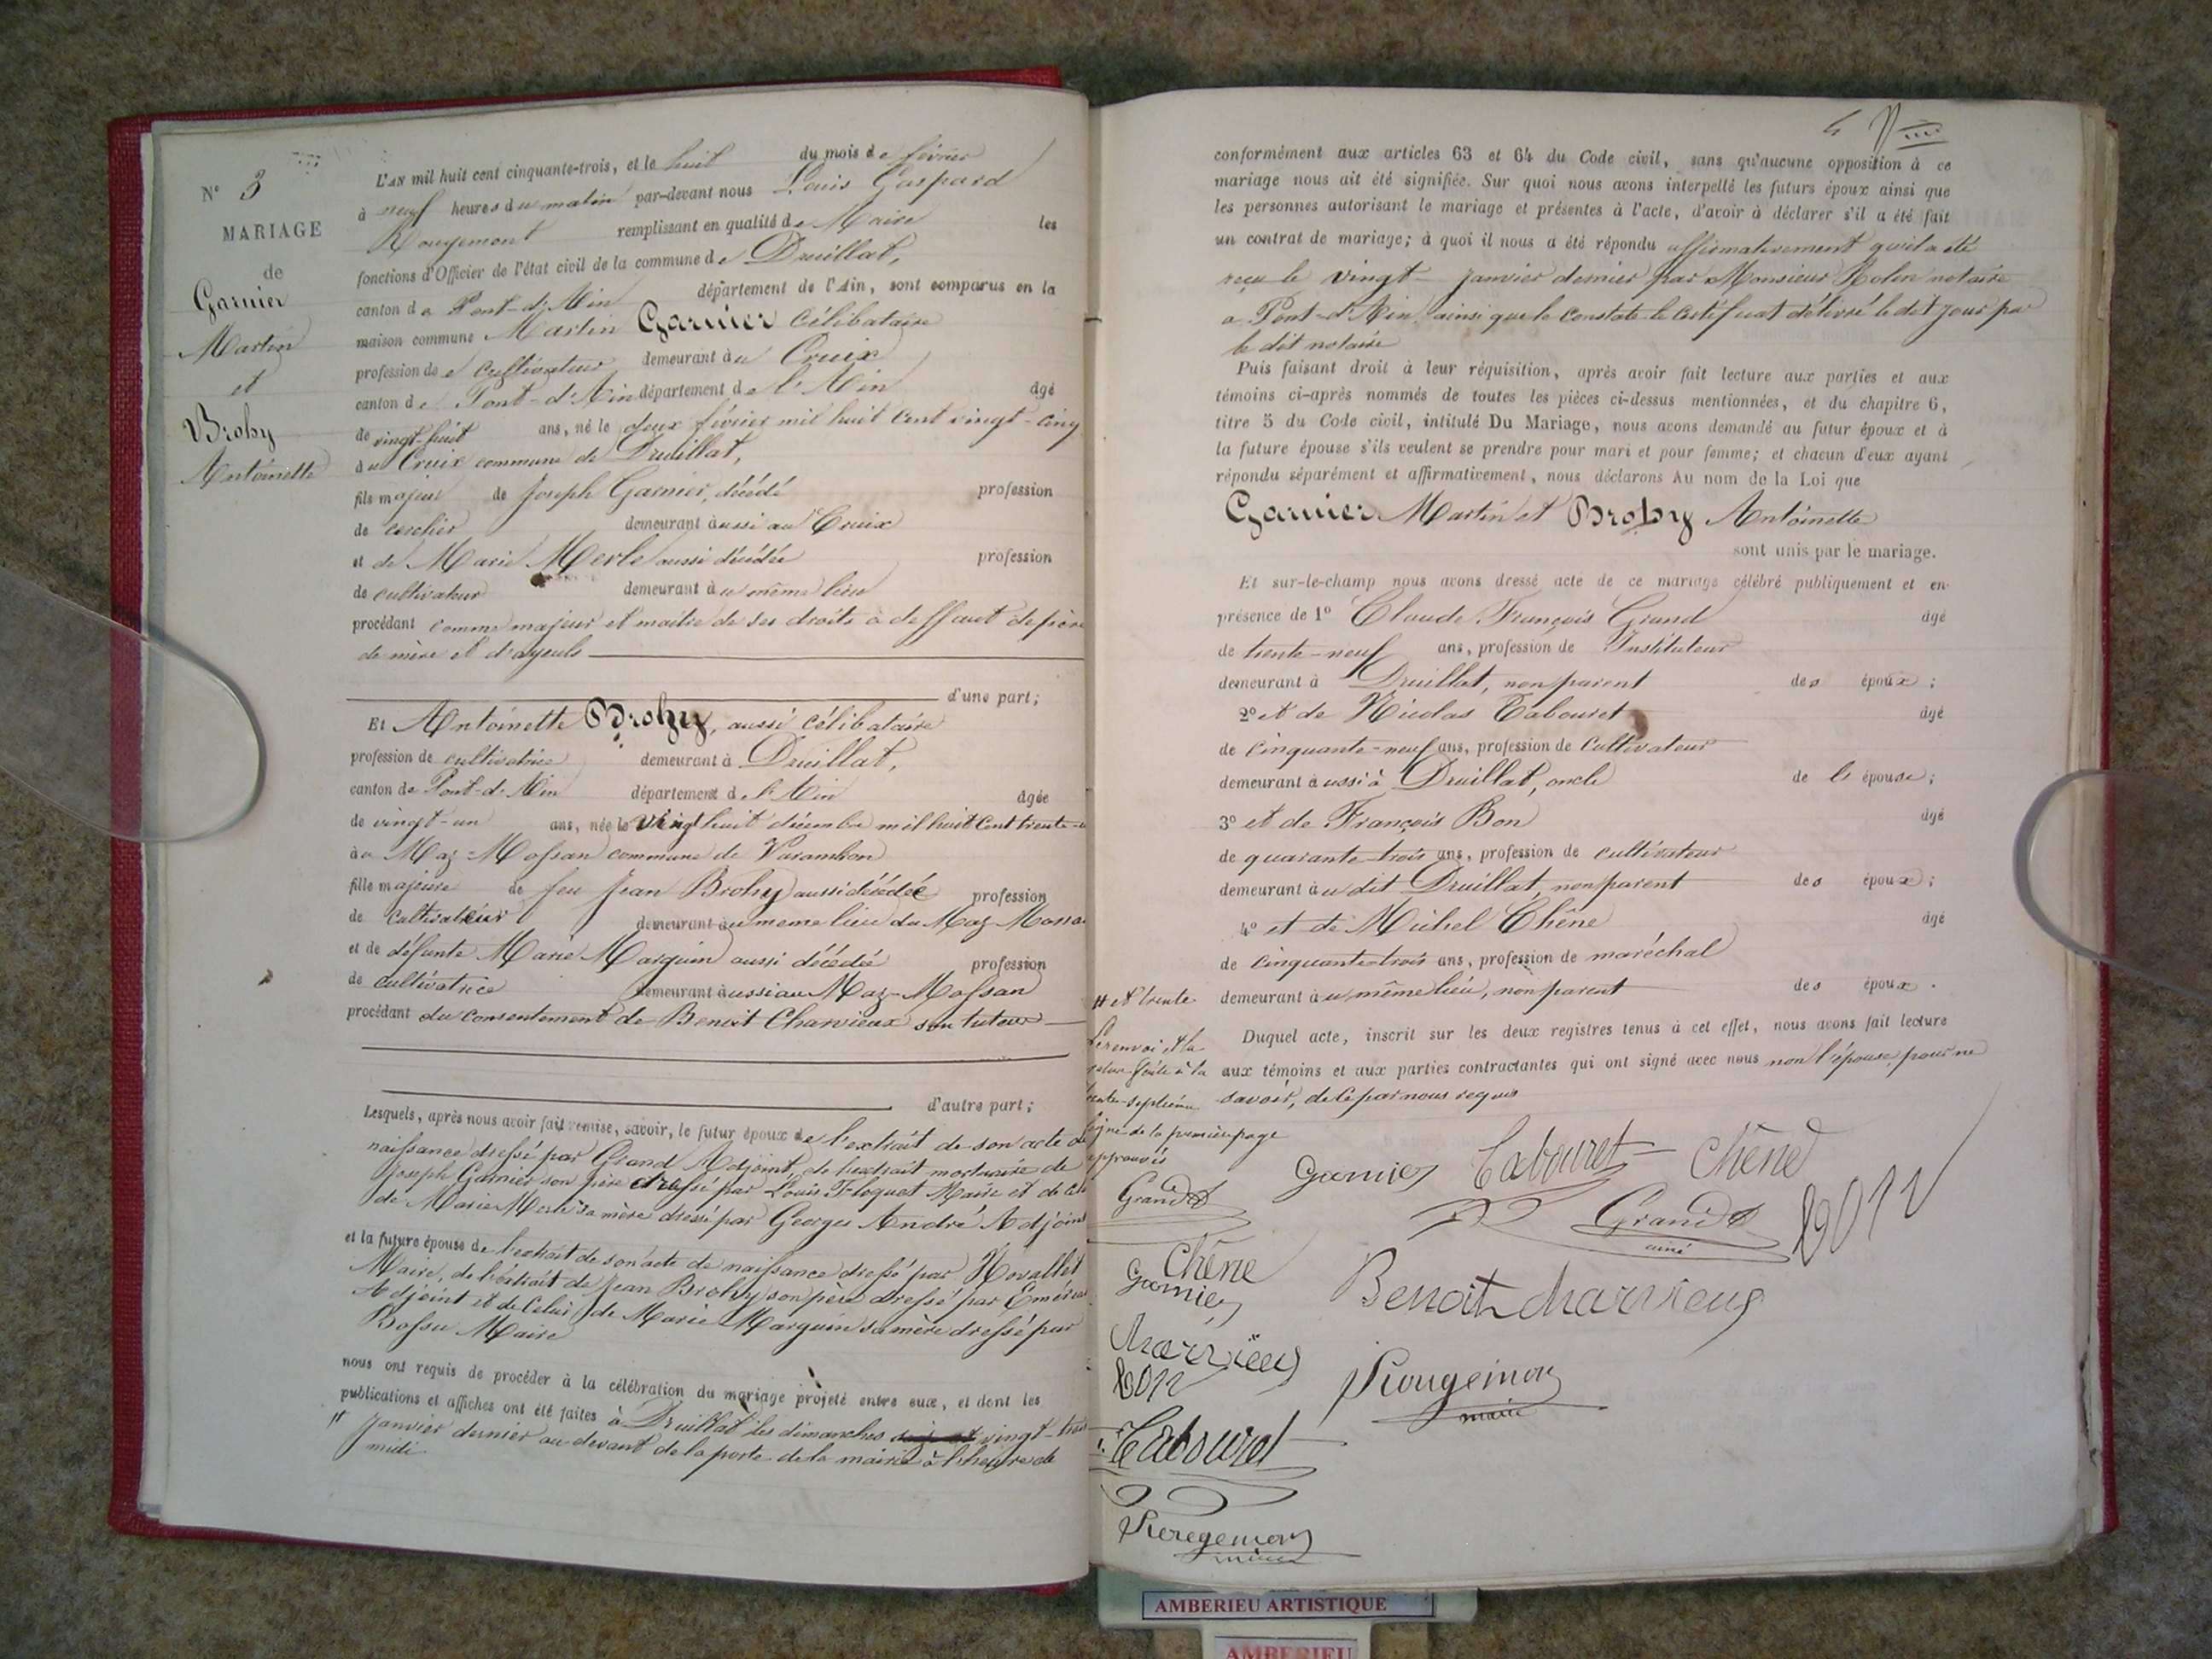 N° 3
MARIAGE
de
Garnier
Martin
et
Brohy
Antoinette
L'AN mil huit cent cinquante-trois, et le huit du mois de février
à neuf heures du matin par-devant nous Louis Gaspard
Rougemont remplissant en qualité de Maire les
fonctions d'Officier de l'état civil de la commune de Druillat,
canton de Pont-d'Ain département de l'Ain, sont comparus en la
maison commune Martin Garnier célibataire
profession de cultivateur demeurant au Cruix
canton de Pont-d'Ain département de l'Ain âgé
de vingt-huit ans, né le deux février mil huit cent vingt-cinq
au Cruix commune de Druillat,
fils majeur de Joseph Garnier, décédé profession
de demeurant aussi au Cruix
et de Marie Merle aussi décédée profession
de cultivateur demeurant au même lieu
procédant comme majeur et maître de ses droits à deffaut de père
de mère et d'ayeuls
d'une part;
Et Antoinette Brohy, aussi célibataire
profession de cultivatrice demeurant à Druillat,
canton de Pont-d'Ain département de l'Ain âgée
de vingt-un ans, née le vingt huit décembre mil huit cent trente-u
au Maz-Mossan commune de Varambon
fille majeure de feu Jean Brohy aussi décédé profession
de cultivateur demeurant au même lieu du Maz Mossa
et de défunte Marie Marguin aussi décédée profession
de cultivatrice demeurant aussi au Maz-Mossan
procédant du consentement de Benoit Charvieux son tuteur
d'autre part;
Lesquels, après nous avoir fait remise, savoir, le futur époux de l'extrait de son acte de
naissance dressé par Grand Adjoint, de l'extrait mortuaire de
Joseph Garnier son père dressé par Louis Floquet Maire et de celui
de Marie Merle sa mère dressé par Georges André Adjoint
et la future épouse de l'extrait de son acte de naissance dressé par
Maire, de l'extrait de Jean Brohy son père dressé par
Adjoint et de celui de Marie Marguin sa mère dressé par
Bossu Maire
nous ont requis de procéder à la célébration du mariage projeté entre eux, et dont les
publications et affiches ont été faites à Druillat les dimanches vingt-trois
# janvier dernier au devant de la porte de la mairie à l'heure de
midi
4
conformément aux articles 63 et 64 du Code civil, sans qu'aucune opposition à ce
mariage nous ait été signifiée. Sur quoi nous avons interpellé les futurs époux ainsi que
les personnes autorisant le mariage et présentes à l'acte, d'avoir à déclarer s'il a été fait
un contrat de mariage; à quoi il nous a été répondu affirmativement qu'il a été
reçu le vingt janvier dernier par Monsieur Rolin notaire
a Pont-d'Ain ainsi que le constate le certificat délivré le dit jour par
le dit notaire
Puis faisant droit à leur réquisition, après avoir fait lecture aux parties et aux
témoins ci-après nommés de toutes les pièces ci-dessus mentionnées, et du chapitre 6,
titre 5 du Code civil, intitulé Du Mariage, nous avons demandé au futur époux et à
la future épouse s'ils veulent se prendre pour mari et pour femme; et chacun d'eux ayant
répondu séparément et affirmativement, nous déclarons Au nom de la Loi que
Garnier Martin et Brohy Antoinette
sont unis par le mariage.
Et sur-le-champ nous avons dressé acte de ce mariage célébré publiquement et en
présence de 1° Claude François Grand âgé
de trente-neuf ans, profession de Instituteur
demeurant à Druillat, non parent des époux;
2° et de Nicolas Tabouret âgé
de cinquante-neuf ans, profession de cultivateur
demeurant aussi à Druillat, oncle de l'épouse;
3° et de François Bon âgé
de quarante-trois ans, profession de cultivateur
demeurant au dit Druillat, non parent des époux;
4° et de Michel Chêne âgé
de cinquante-trois ans, profession de maréchal
demeurant au même lieu, non parent des époux.
Duquel acte, inscrit sur les deux registres tenus à cet effet, nous avons fait lecture
aux témoins et aux parties contractantes qui ont signé avec nous non l'épouse, pour ne
savoir, de ce par nous requis
# et trente
Le renvoi et la
rature faite à la
trente-septième
ligne de la première page
approuvés
Garnier Tabouret Chêne
Grand
ainé
Bon
Benoit charvieux
Rougemon
maire
Grand
Chêne
Garnier
Charvieux
Bon
Tabouret
Rougemon
maire
AMBERIEU ARTISTIQUE
AMBERIEU